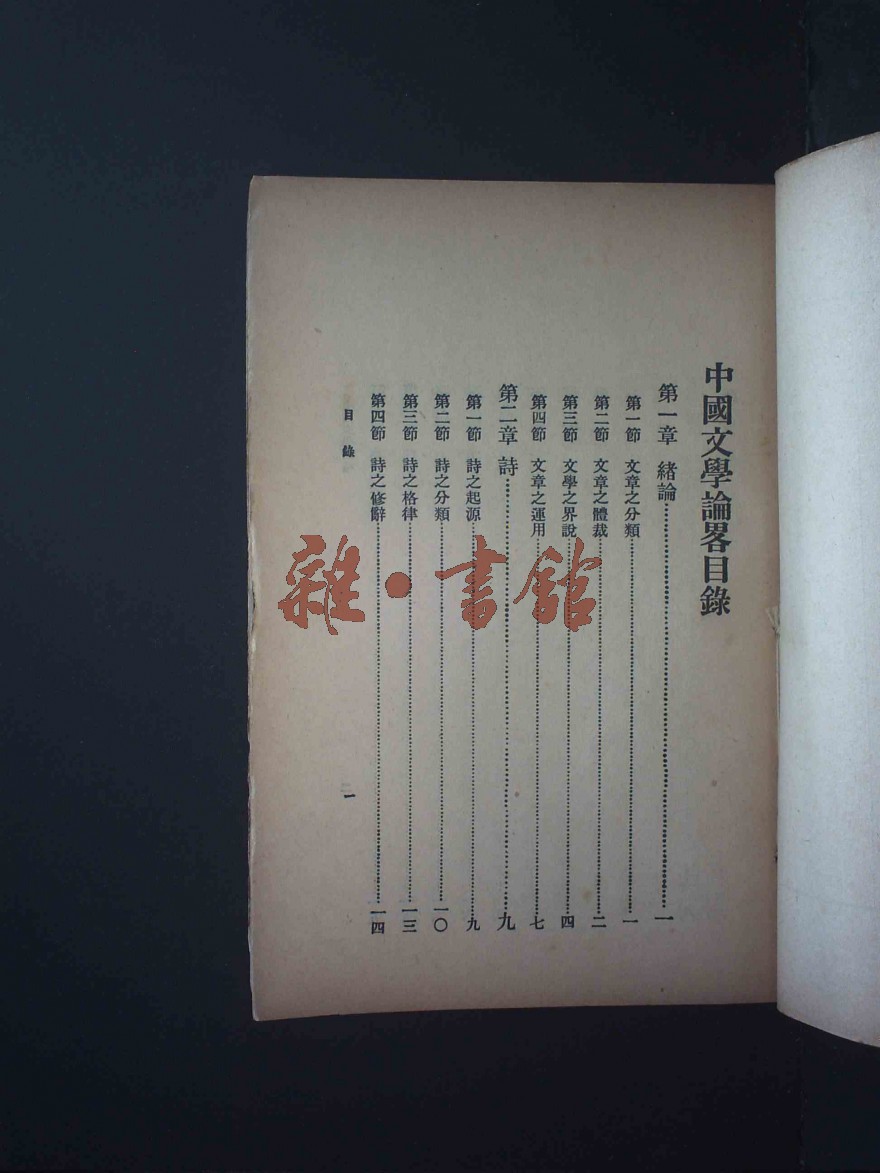 中國文學論畧目錄
第一章 緒論……一
第一節 文章之分類……一
第二節 文章之體裁……二
第三節 文學之界說……四
第四節 文章之運用……七
第二章 詩……九
第一節 詩之起源……九
第二節 詩之分類……一〇
第三節 詩之格律……一三
第四節 詩之修辭……一四
目錄
一
雜·書館